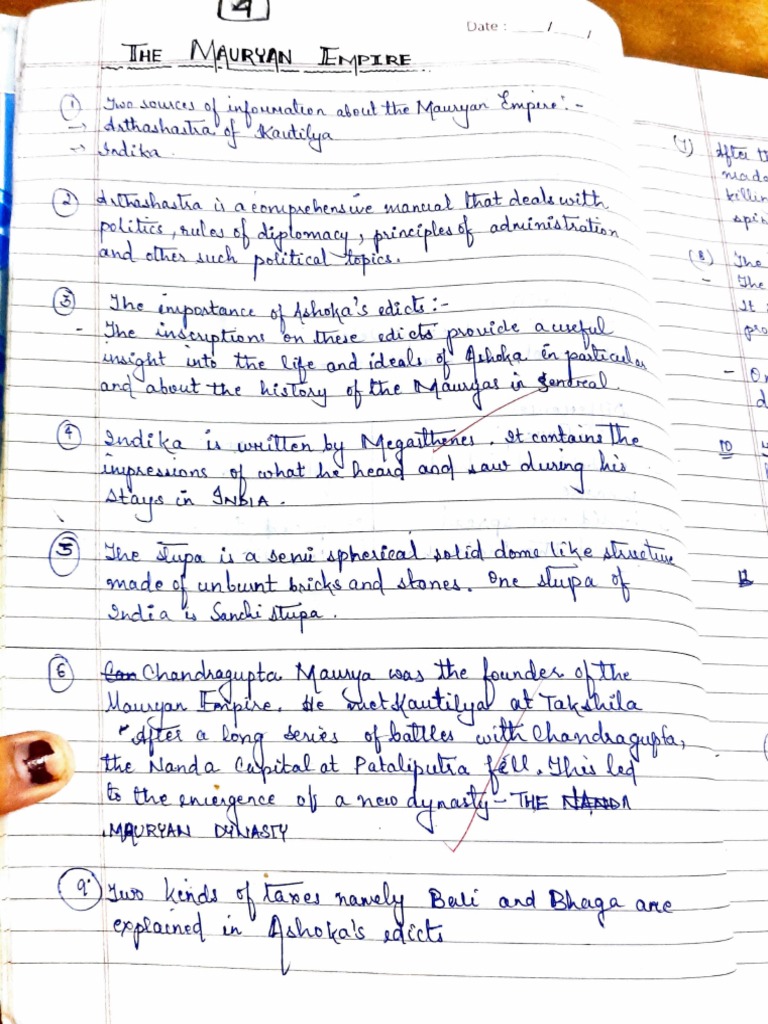 4
Date : / /
THE MAURYAN EMPIRE
① Two sources of information about the Mauryan Empire :-
→ Arthashastra of Kautilya
→ Indika.
② Arthashastra is a comprehensive manual that deals with
politics, rules of diplomacy, principles of administration
and other such political topics.
③ The importance of Ashoka's edicts :-
- The inscriptions on these edicts provide a useful
insight into the life and ideals of Ashoka in particular
and about the history of the Mauryas in genreal.
④ Indika is written by Megasthenes. It contains the
impressions of what he heard and saw during his
stays in INDIA.
⑤ The stupa is a semi spherical solid dome like structure
made of unburnt bricks and stones. One stupa of
India is Sanchi stupa.
⑥ Chandragupta Maurya was the founder of the
Mauryan Empire. He met Kautilya at Takshila
After a long series of battles with Chandragupta,
the Nanda Capital at Pataliputra fell. This led
to the emergence of a new dynasty - THE NANDA
MAURYAN DYNASTY
9. Two kinds of taxes namely Bali and Bhaga are
explained in Ashoka's edicts
(7) After
made
killin
spir
(8) The
- The
It
pro
- On
d
10